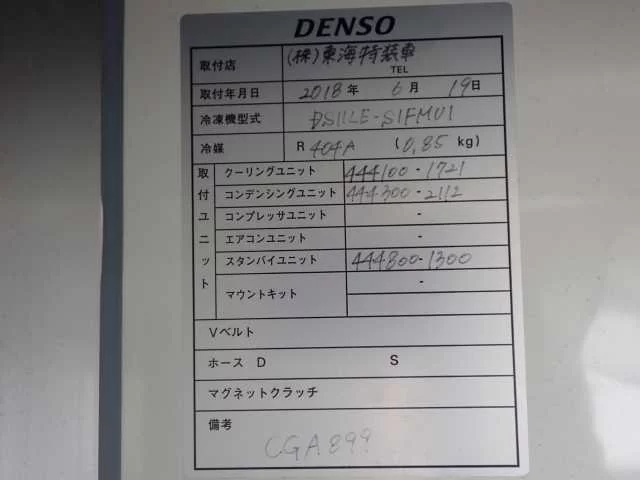 DENSO
取付店 (株)東海特装車
TEL
取付年月日 2018年 6月 19日
冷凍機型式 DS11LE-S1FMU1
冷媒 R 404A (0.85 kg)
取付ユニット
クーリングユニット 444100-1721
コンデンシングユニット 444300-2112
コンプレッサユニット -
エアコンユニット -
スタンバイユニット 444800-1300
マウントキット -
Vベルト
ホース D S
マグネットクラッチ
備考
CGA899